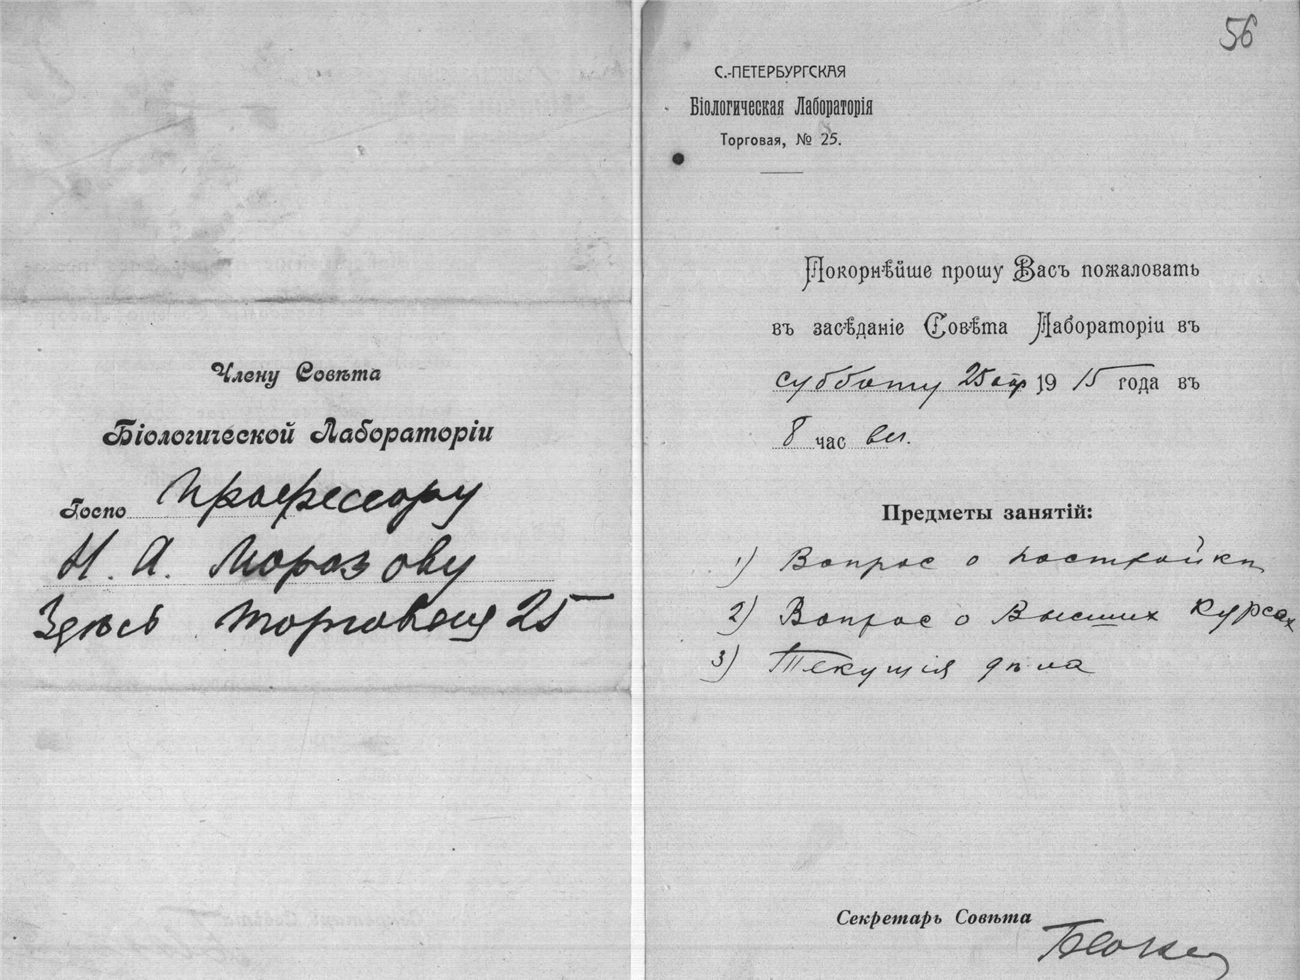 Члену Совѣта
Біологической Лабораторіи
Госпо Профессору
Н. А. Морозову
Здѣсь Торговая 25
56
С.-ПЕТЕРБУРГСКАЯ
Біологическая Лабораторія
Торговая, № 25.
Покорнѣйше прошу Васъ пожаловать
въ засѣданіе Совѣта Лабораторіи въ
субботу 25 апр 1915 года въ
8 час веч.
Предметы занятій:
1) Вопрос о постройкѣ
2) Вопрос о Высших Курсах
3) Текущія дѣла
Секретарь Совѣта